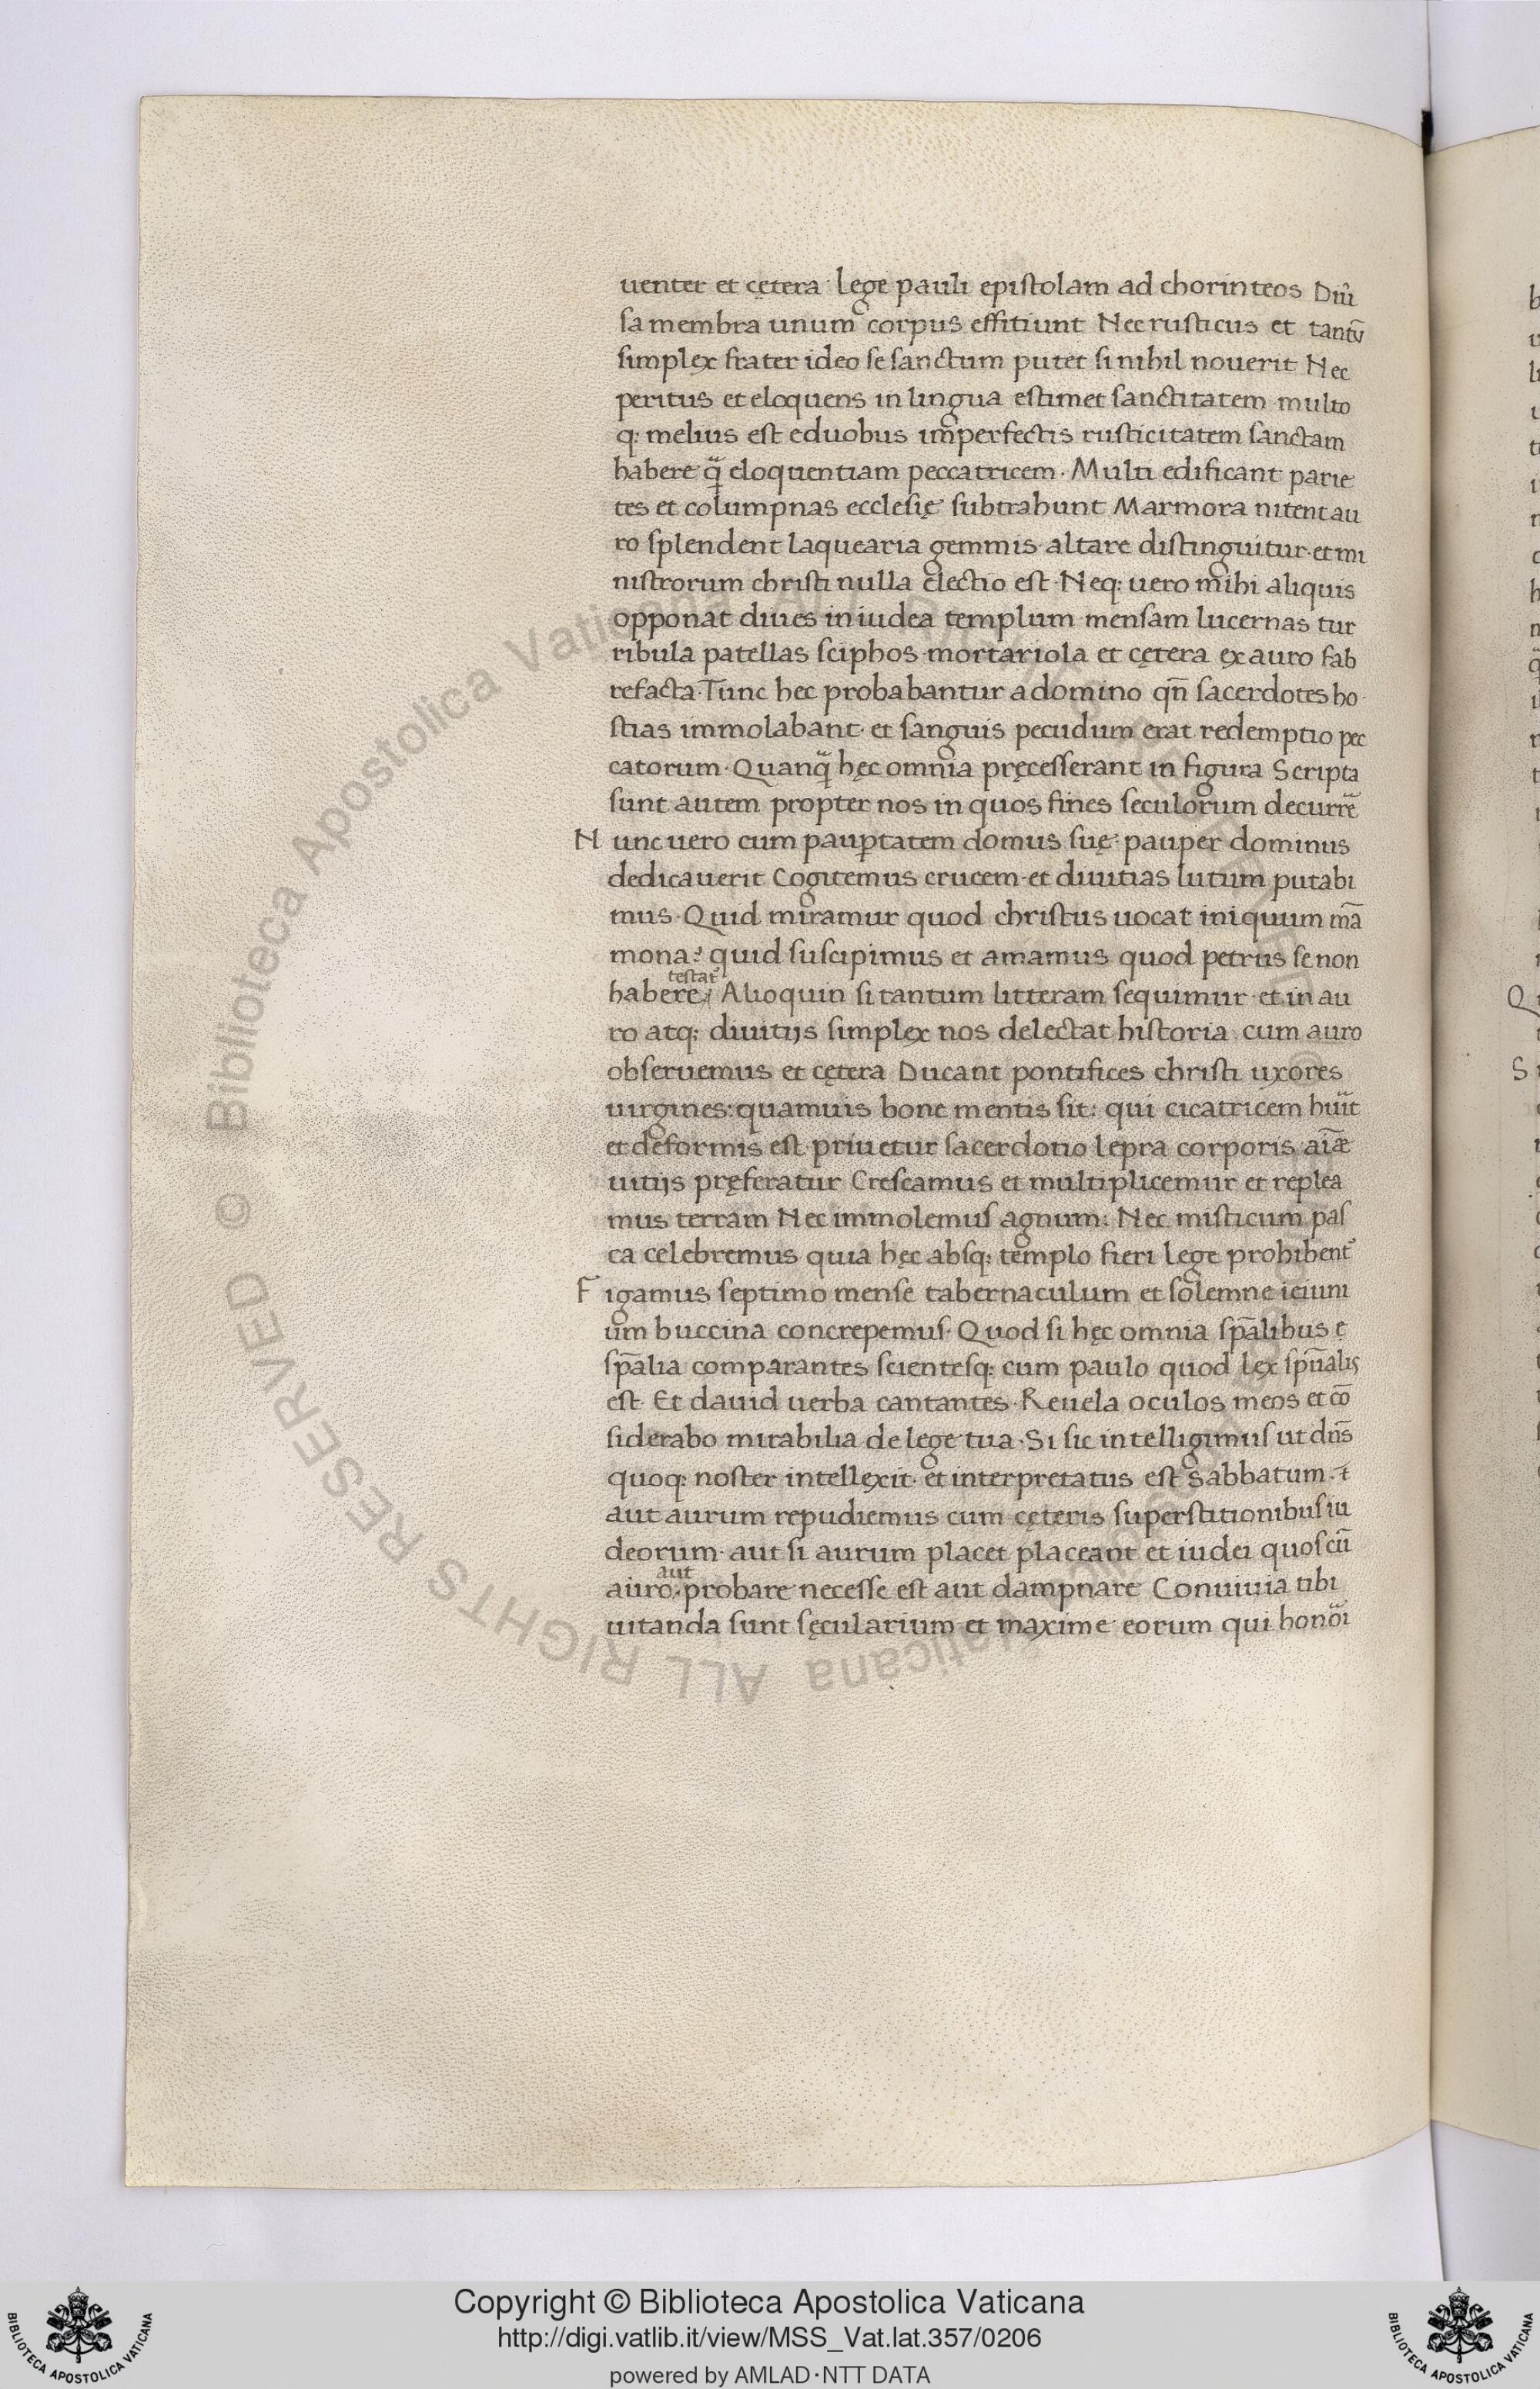 uenter et cętera lege pauli epistolam ad chorinteos Diu̅
sa membra unum corpus effitiunt Nec rusticus et tantu̅
simplex frater ideo se sanctum putet si nihil nouerit Nec
peritus et eloquens in lingua estimet sanctitatem multo
q: melius est eduobus imperfectis rusticitatem sanctam
habere q̃ eloquentiam peccatricem · Multi edificant parie
tes et columpnas ecclesię subtrahunt Marmora nitent au
ro splendent laquearia gemmis altare distinguitur · et mi
nistrorum christi nulla electio est · Neq: uero mihi aliquis
opponat diues in iudea templum mensam lucernas tur
ribula patellas sciphos mortariola et cętera ex auro fab
refacta · Tunc hec probabantur a domino qn̅ sacerdotes ho
stias immolabant · et sanguis pecudum erat redemptio pec
catorum · Quanq̃ hęc omnia pręcesserant in figura Scripta
sunt autem propter nos in quos fines seculorum decurre̅
Nunc uero cum paup̱tatem domus suę · pauper dominus
dedicauerit Cogitemus crucem · et diuitias lutum putabi
mus · Quid miramur quod christus uocat iniquum ma̅
mona ? quid suscipimus et amamus quod petrus se non
testat᷑
habere · Alioquin si tantum litteram sequimur · et in au
ro atq; diuitijs simplex nos delectat historia · cum auro
obseruemus et cętera Ducant pontifices christi uxores
uirgines : quamuis bone mentis sit : qui cicatricem hu̅it
et deformis est · priuetur sacerdotio lepra corporis ai̅æ
uitijs pręferatur Crescamus et multiplicemur et replea
mus terram Nec immolemus agnum : Nec misticum pas
ca celebremus quia hęc absq: templo fieri lege prohibent᷑
Figamus septimo mense tabernaculum et solemne ieiuni
um buccina concrepemus · Quod si hęc omnia sp̅alibus ę
sp̅alia comparantes scientesq: cum paulo quod lex spu̅alis
est · Et dauid uerba cantantes · Reuela oculos meos et co̅
siderabo mirabilia de lege tua · Si sic intelligimus ut dn̅s
quoq: noster intellexit · et interpretatus est sabbatum ·
aut aurum repudiemus cum cęteris superstitionibus iu
deorum · aut si aurum placet placeant et iudei quos cu̅
aut
auro · probare necesse est aut dampnare Conuiuia tibi
uitanda sunt sęcularium et maxime eorum qui honori
Copyright © Biblioteca Apostolica Vaticana
http://digi.vatlib.it/view/MSS_Vat.lat.357/0206
powered by AMLAD·NTT DATA